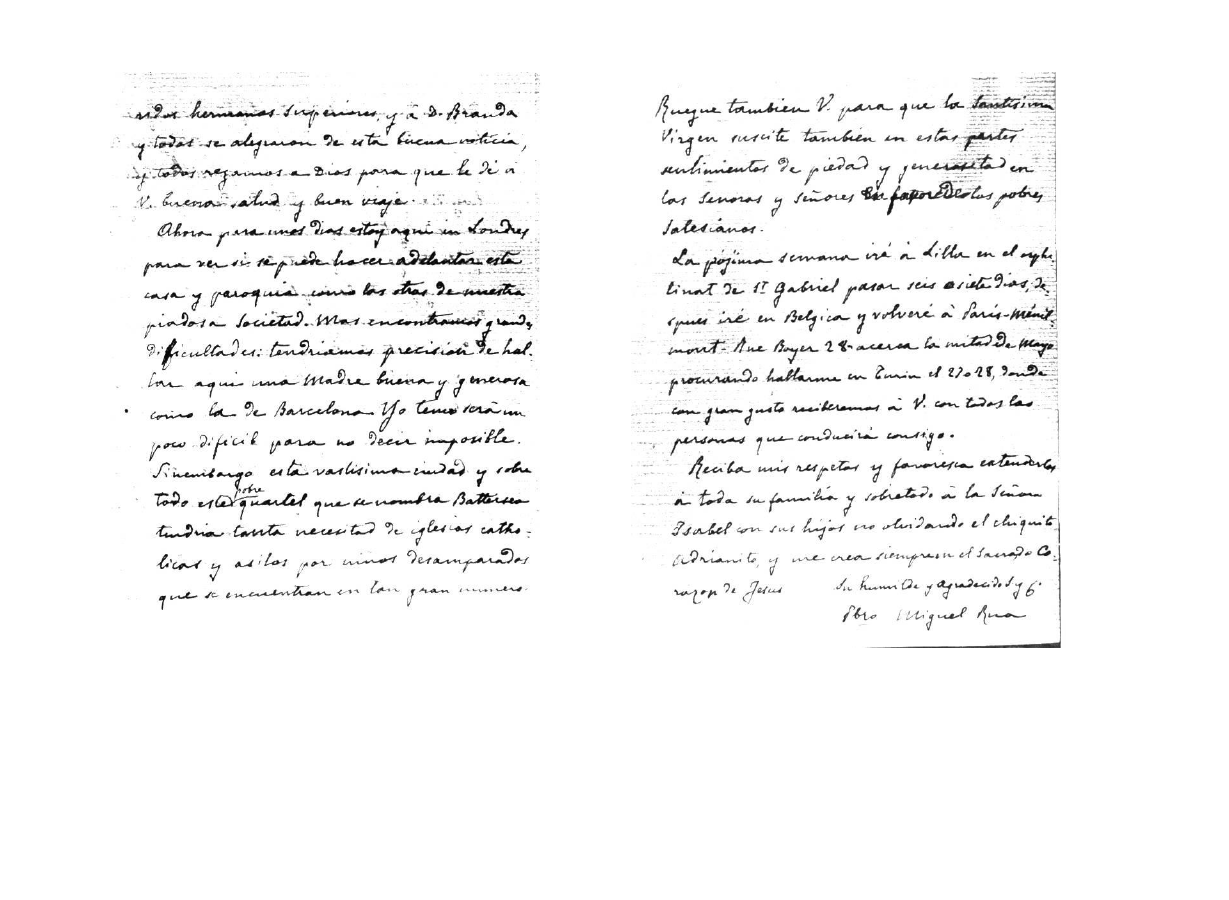 hermanos Superiores, y à D. Branda
y todos se alegraron de esta buena noticia,
y todos rogamos a Dios para que le dé à
V. buena salud y buen viaje.
Ahora para unos dias estoy aqui en Londres
para ver si se puede hacer adelantar esta
casa y paroquia como las otras de nuestra
piadosa Societad. Mas encontramos grandes
dificultades: tendriamos precision de hal-
lar aqui una Madre buena y generosa
como la de Barcelona Yo temo serà un
poco dificil para no decir imposible.
Sinembargo esta vastisima ciudad y sobre
todo este pobre quartel que se nombra Battersea
tendria tanta necesitad de iglesias catho-
licas y asilos por ninos desamparados
que se encuentran en tan gran numero.
Ruegue tambien V. para que la Santisima
Virgen suscite tambien en estas partes
sentimientos de piedad y generositad en
las Senoras y Señores en favor de los pobres
Salesianos.
La pójima semana iré à Lilla en el orphe-
linat de St Gabriel pasar seis o siete dias, de-
spues iré en Belgica y volveré à Paris-Ménil-
mont- Rue Boyer 28- acerca la mitad de Mayo
procurando hallarme en Turin el 27 o 28, donde
con gran gusto reciberemos à V. con todas las
personas que conducirà consigo.
Reciba mis respetos y favoresca estenderlos
à toda su familia y sobretodo à la Señora
Isabel con sus hijos no olvidando el chiquito
Adrianito, y me crea siempre en el Sacrado Co-
razon de Jesus Su humilde y agradecido S. y C.
Pbro Miguel Rua